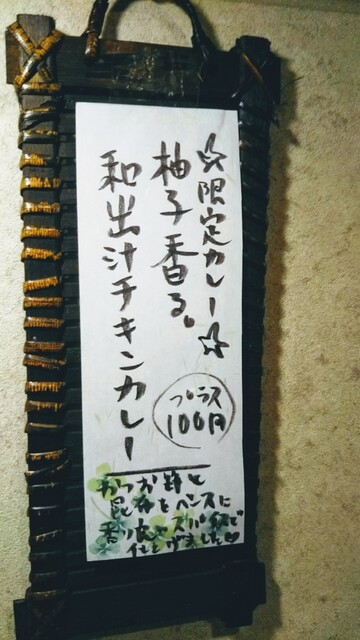 ☆限定カレー☆
柚子香る。
和出汁チキンカレー
プラス
100円
かつお節と
昆布をベースに
香り良くスパイスで
仕上げました♡